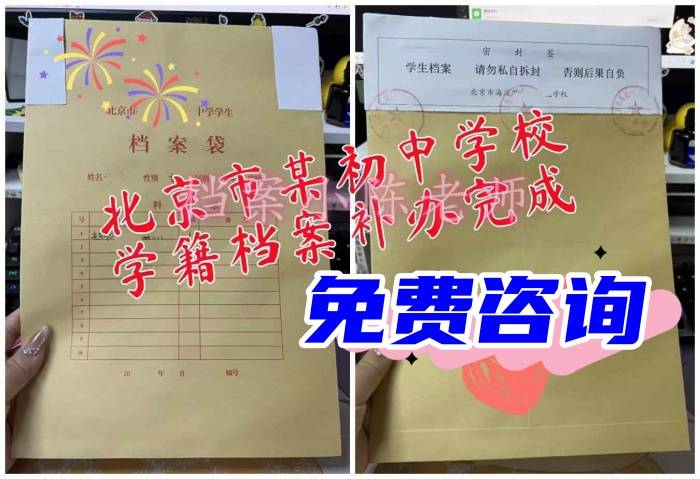 北京市
中学学生
档案袋
姓名
性别
号
1
2
3
4
5
6
7
8
9
10
20 年 月
编号
密封签
学生档案 请勿私自拆封 否则后果自负
北京市海淀
学校
档案小陈老师
北京市某初中学校
学籍档案补办完成
免费咨询